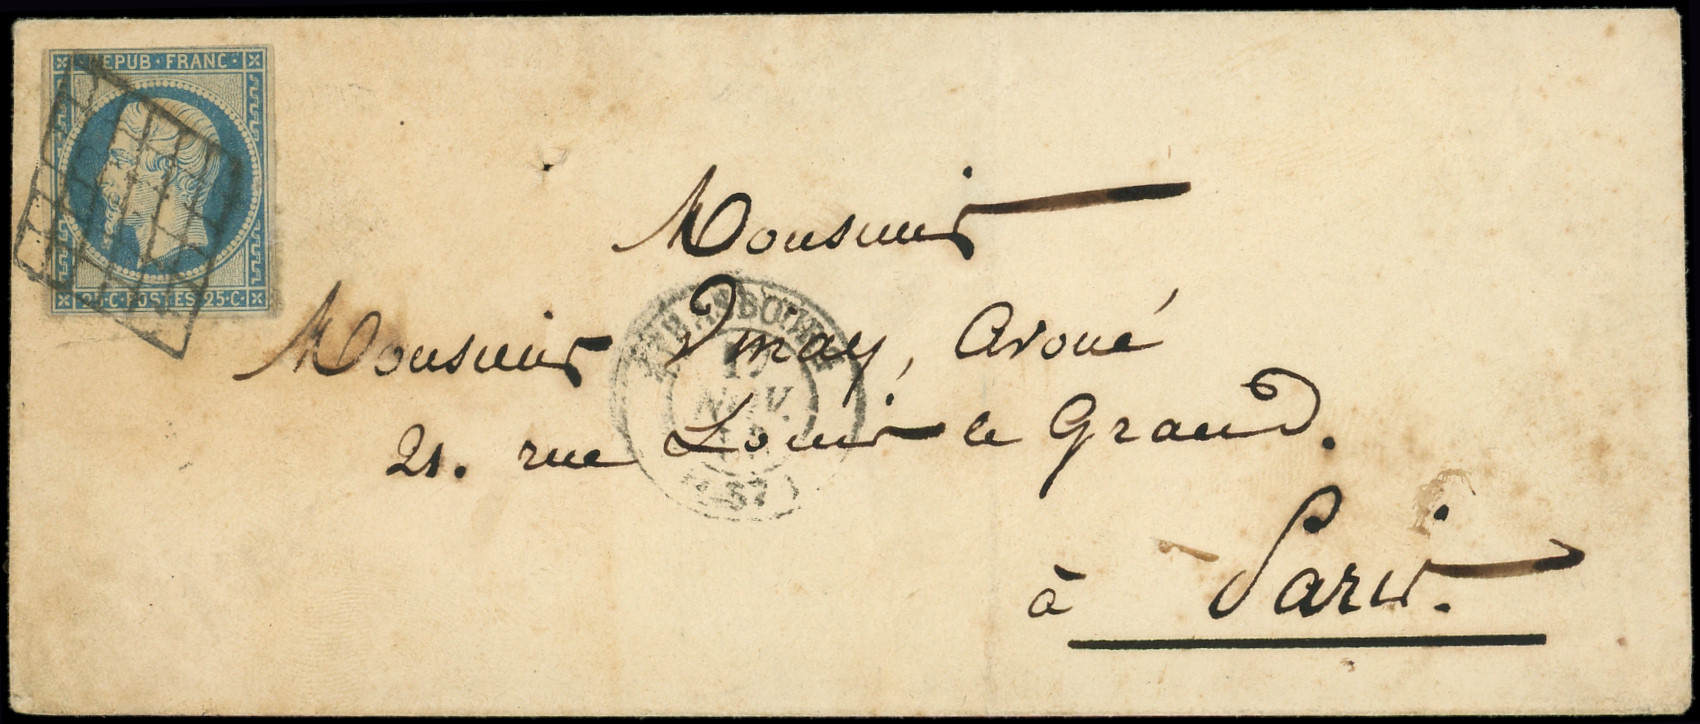 REPUB · FRANC ·
25 · C · POSTES 25 · C ·
Monsieur
Monsieur Dmay, Avoué
21. rue Louis le Grand.
à Paris.
STRASBOURG
17
NOV.
(67)